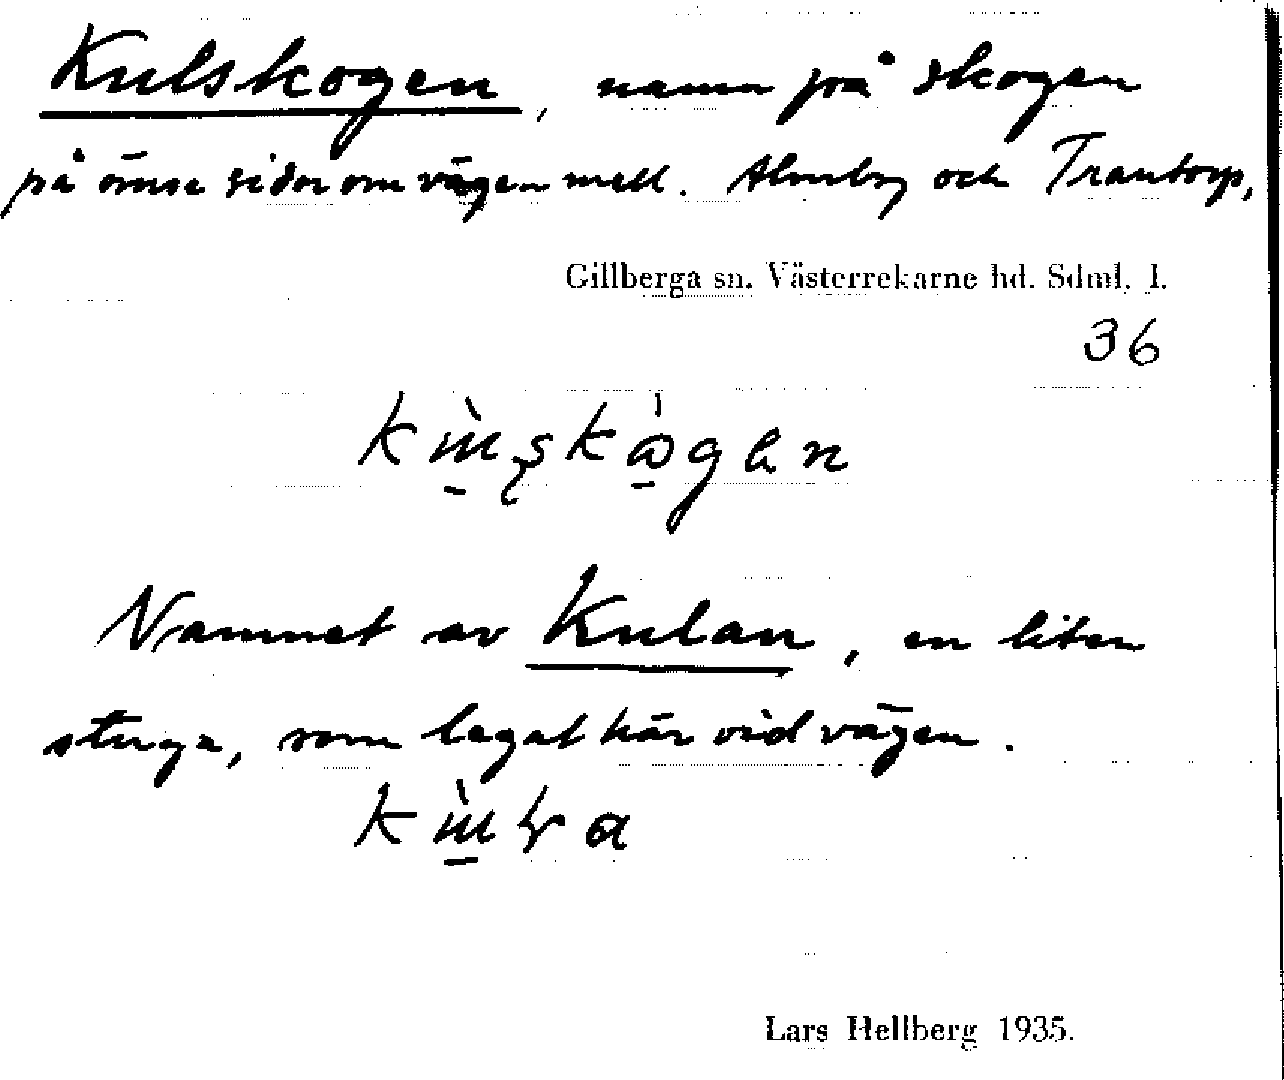 Kulskogen, namn på skogen
på ömse sidor om vägen mell. Almby och Trantorp,
Gillberga sn. Västerrekarne hd. Sdml. I.
36
Namnet av Kulan, en liten
stuga, som legat här vid vägen.
Lars Hellberg 1935.